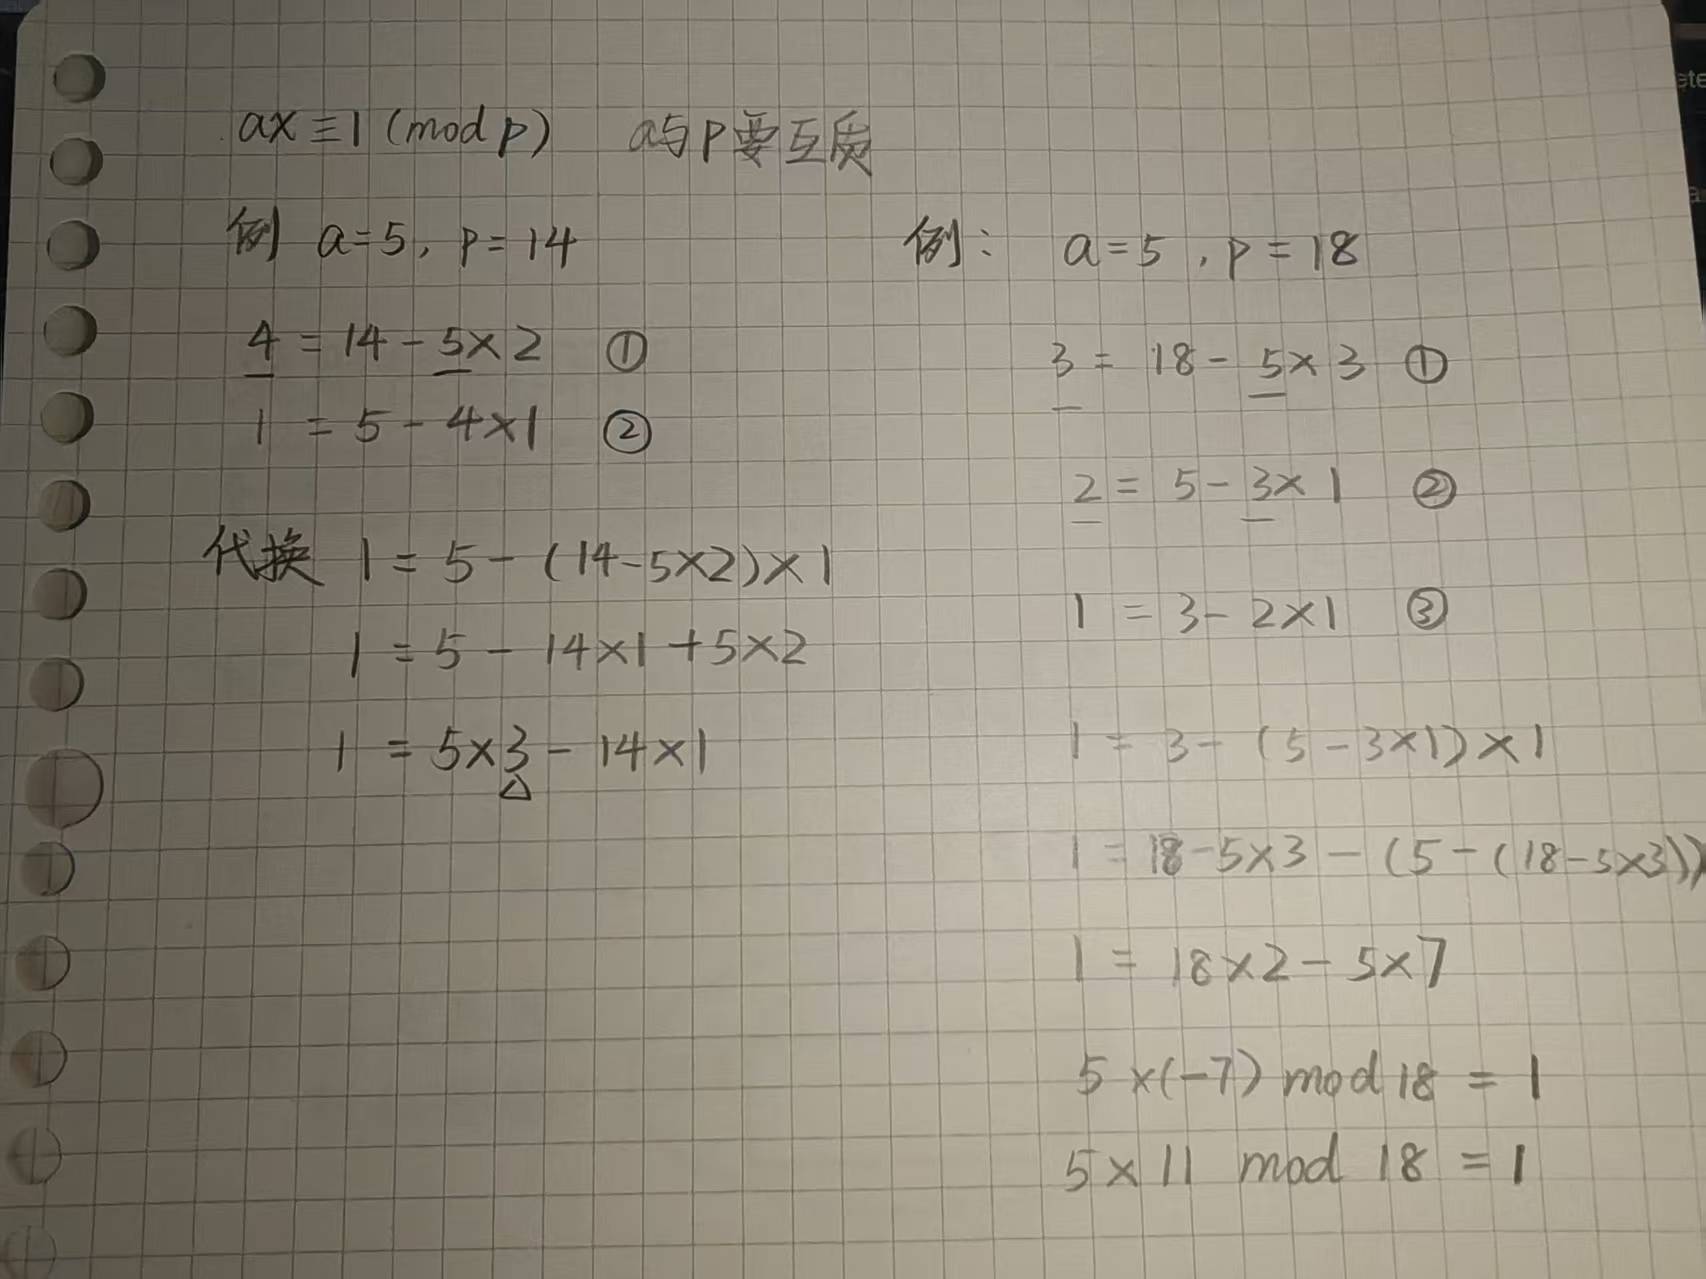 ax≡1 (mod p) a与p要互质
例 a=5, p=14
4 = 14-5×2 ①
1 = 5-4×1 ②
代换 1 = 5-(14-5×2)×1
1 = 5-14×1+5×2
1 = 5×3-14×1
△
例: a=5, p=18
3 = 18-5×3 ①
2 = 5-3×1 ②
1 = 3-2×1 ③
1 = 3-(5-3×1)×1
1 = 18-5×3-(5-(18-5×3))
1 = 18×2-5×7
5×(-7) mod 18 = 1
5×11 mod 18 = 1